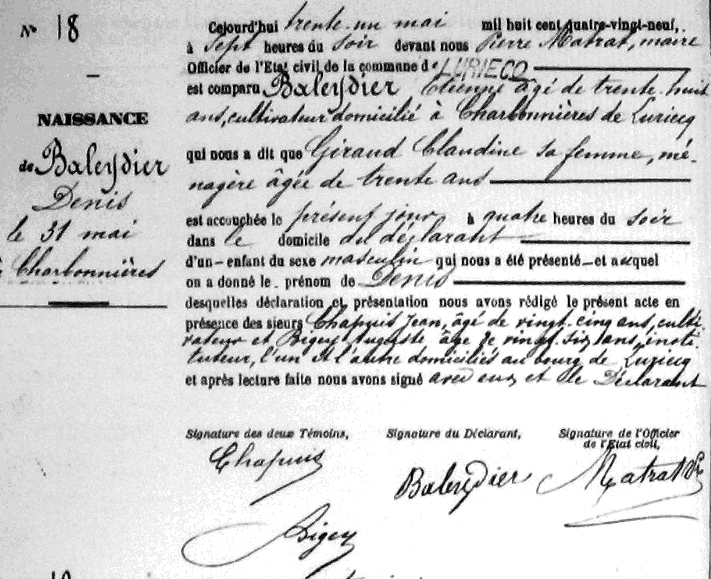 N° 18
NAISSANCE
de Baleydier
Denis
le 31 mai
à Charbonnières
Cejourd'hui trente-un mai mil huit cent quatre-vingt-neuf,
à sept heures du soir devant nous Pierre Matrat, maire
Officier de l'Etat civil de la commune de LURIECQ
est comparu Baleydier Etienne âgé de trente-huit
ans, cultivateur domicilié à Charbonnières de Luriecq
qui nous a dit que Giraud Claudine sa femme, mé-
nagère âgée de trente ans
est accouchée le présent jour à quatre heures du soir
dans le domicile du déclarant
d'un enfant du sexe masculin qui nous a été présenté et auquel
on a donné le prénom de Denis
desquelles déclaration et présentation nous avons rédigé le présent acte en
présence des sieurs Chapuis Jean, âgé de vingt-cinq ans, culti-
vateur et Bigey Auguste âgé de vingt-six ans, insti-
tuteur, l'un et l'autre domiciliés au bourg de Luriecq
et après lecture faite nous avons signé avec eux et le Déclarant
Signature des deux Témoins, Signature du Déclarant, Signature de l'Officier
de l'Etat civil,
Chapuis Baleydier Matrat
Bigey